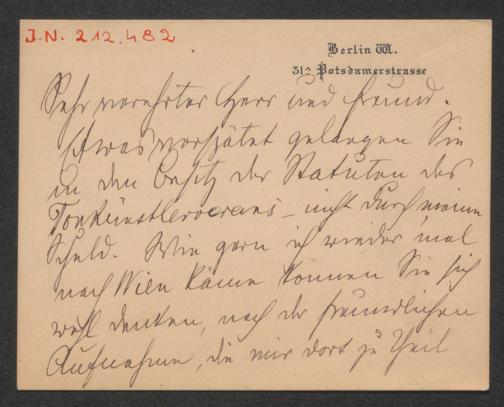 I.N. 212.482
Berlin W.
31ᴬ Potsdamerstrasse
Sehr verehrter Herr und Freund.
Etwas verspätet gelangen Sie
in den Besitz der Statuten des
Tonkünstlervereins – nicht durch meine
Schuld. Wie gern ich wieder mal
nach Wien käme können Sie sich
wohl denken, nach der freundlichen
Aufnahme, die mir dort zu Theil